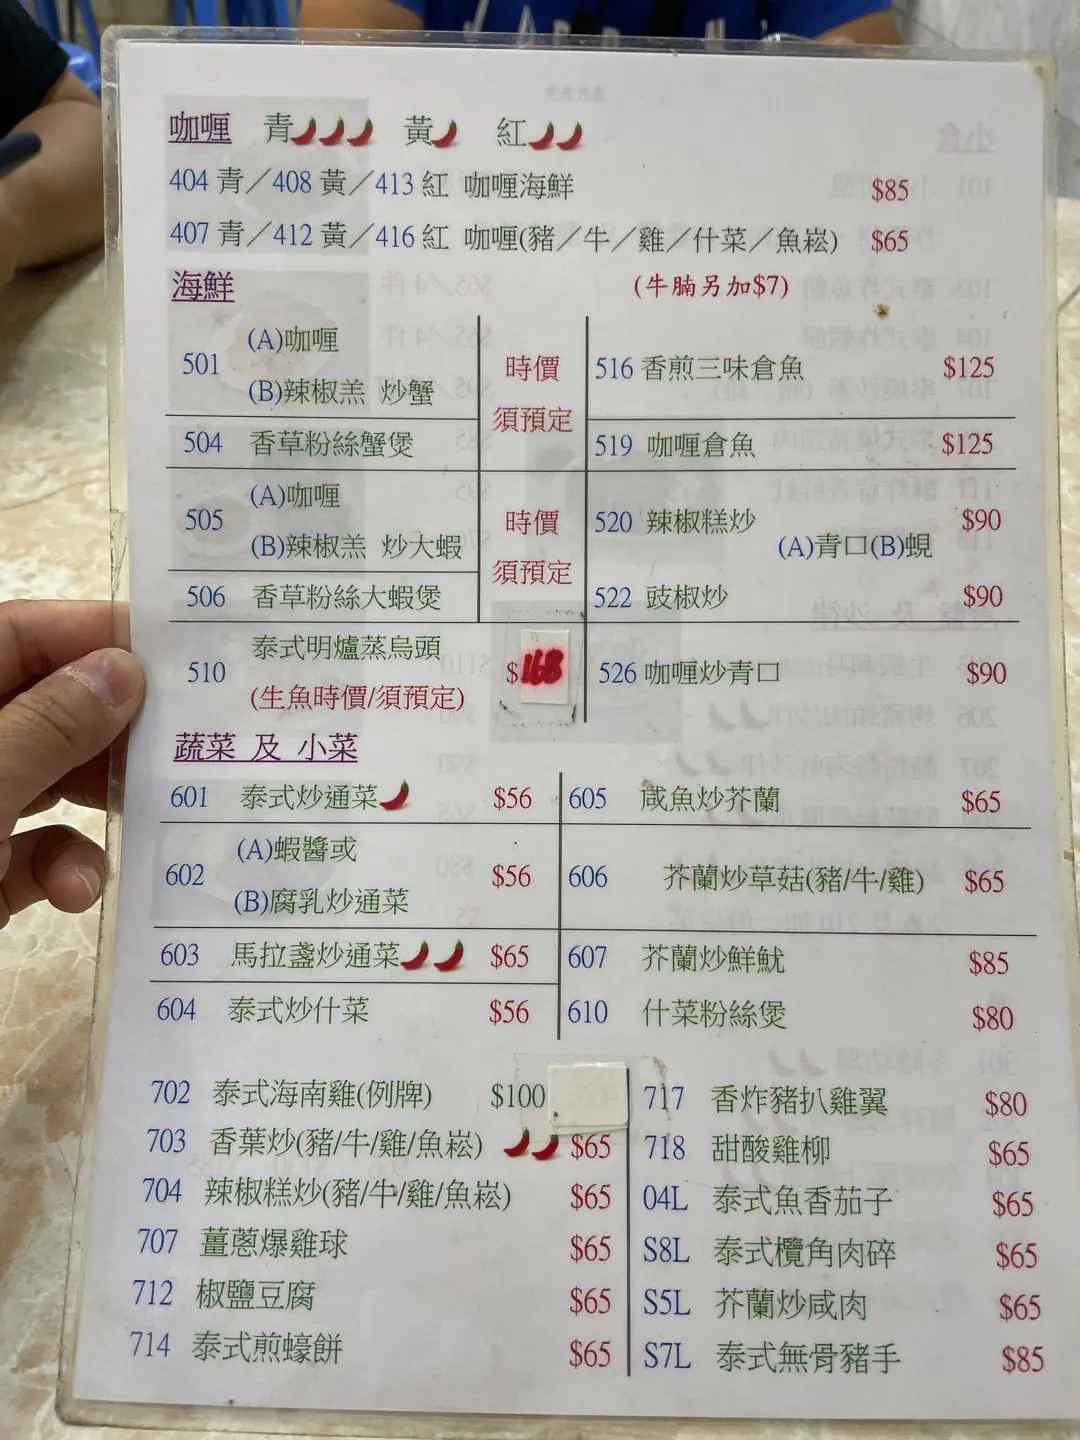 咖喱 青 黃 紅
404 青／408 黃／413 紅 咖喱海鮮 $85
407 青／412 黃／416 紅 咖喱(豬／牛／雞／什菜／魚崧) $65
海鮮 (牛腩另加$7)
501 (A)咖喱
(B)辣椒羔 炒蟹
504 香草粉絲蟹煲
時價
須預定
516 香煎三味倉魚 $125
519 咖喱倉魚 $125
505 (A)咖喱
(B)辣椒羔 炒大蝦
506 香草粉絲大蝦煲
時價
須預定
520 辣椒糕炒 $90
(A)青口(B)蜆
522 豉椒炒 $90
510 泰式明爐蒸烏頭 $168
(生魚時價/須預定)
526 咖喱炒青口 $90
蔬菜 及 小菜
601 泰式炒通菜 $56
605 咸魚炒芥蘭 $65
602 (A)蝦醬或
(B)腐乳炒通菜 $56
606 芥蘭炒草菇(豬/牛/雞) $65
603 馬拉盞炒通菜 $65
607 芥蘭炒鮮魷 $85
604 泰式炒什菜 $56
610 什菜粉絲煲 $80
702 泰式海南雞(例牌) $100
717 香炸豬扒雞翼 $80
703 香葉炒(豬/牛/雞/魚崧) $65
718 甜酸雞柳 $65
704 辣椒糕炒(豬/牛/雞/魚崧) $65
04L 泰式魚香茄子 $65
707 薑蔥爆雞球 $65
S8L 泰式欖角肉碎 $65
712 椒鹽豆腐 $65
S5L 芥蘭炒咸肉 $65
714 泰式煎蠔餅 $65
S7L 泰式無骨豬手 $85